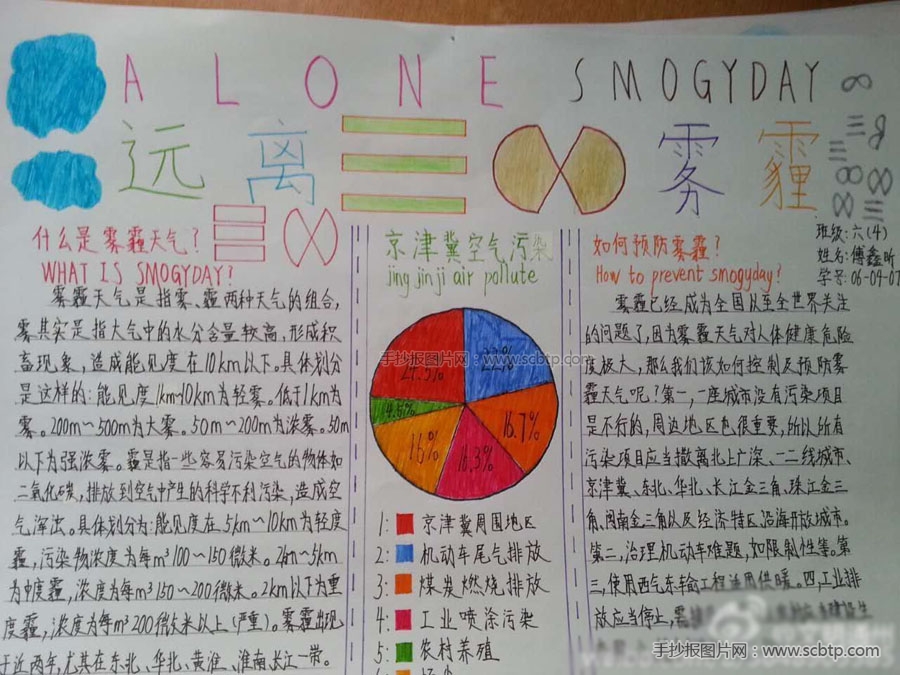 A LONE SMOGYDAY
远离 雾霾
班级:六(4)
姓名:傅鑫昕
学号:06-04-07
什么是雾霾天气?
WHAT IS SMOGYDAY?
雾霾天气是指雾、霾两种天气的组合,
雾其实是指大气中的水分含量较高,形成积
畜现象,造成能见度在10km以下。具体划分
是这样的:能见度1km~10km为轻雾。低于1km为
雾。200m~500m为大雾。50m~200m为浓雾。50m
以下为强浓雾。霾是指一些容易污染空气的物体如
二氧化碳,排放到空气中产生的科学不利污染,造成空
气浑浊。具体划分为:能见度在5km~10km为轻度
霾,污染物浓度为每m³100~150微米。2km~5km
为中度霾,浓度为每m³150~200微米。2km以下为重
度霾,浓度为每m³200微米以上(严重)。雾霾出现
于近两年,尤其在东北、华北、黄淮、淮南长江一带。
京津冀空气污染
jing jin ji air pollute
24.5%
22%
16.7%
16.3%
16%
4.5%
1: 京津冀周围地区
2: 机动车尾气排放
3: 煤炭燃烧排放
4: 工业喷涂污染
5: 农村养殖
如何预防雾霾?
How to prevent smogyday?
雾霾已经成为全国以至全世界关注
的问题了,因为雾霾天气对人体健康危险
度极大,那么我们该如何控制及预防雾
霾天气呢?第一,一座城市没有污染项目
是不行的,周边地区也很重要,所以所有
污染项目应当撤离北上广深、一二线城市、
京津冀、东北、华北、长江金三角、珠江金三
角、闽南金三角以及经济特区沿海开放城市。
第二,治理机动车难题,如限制性等。第
三,使用西气东输工程适用供暖。四,工业排
放应当停止,
手抄报图片网:www.scbtp.com
手抄报图片网:www.scbtp.com